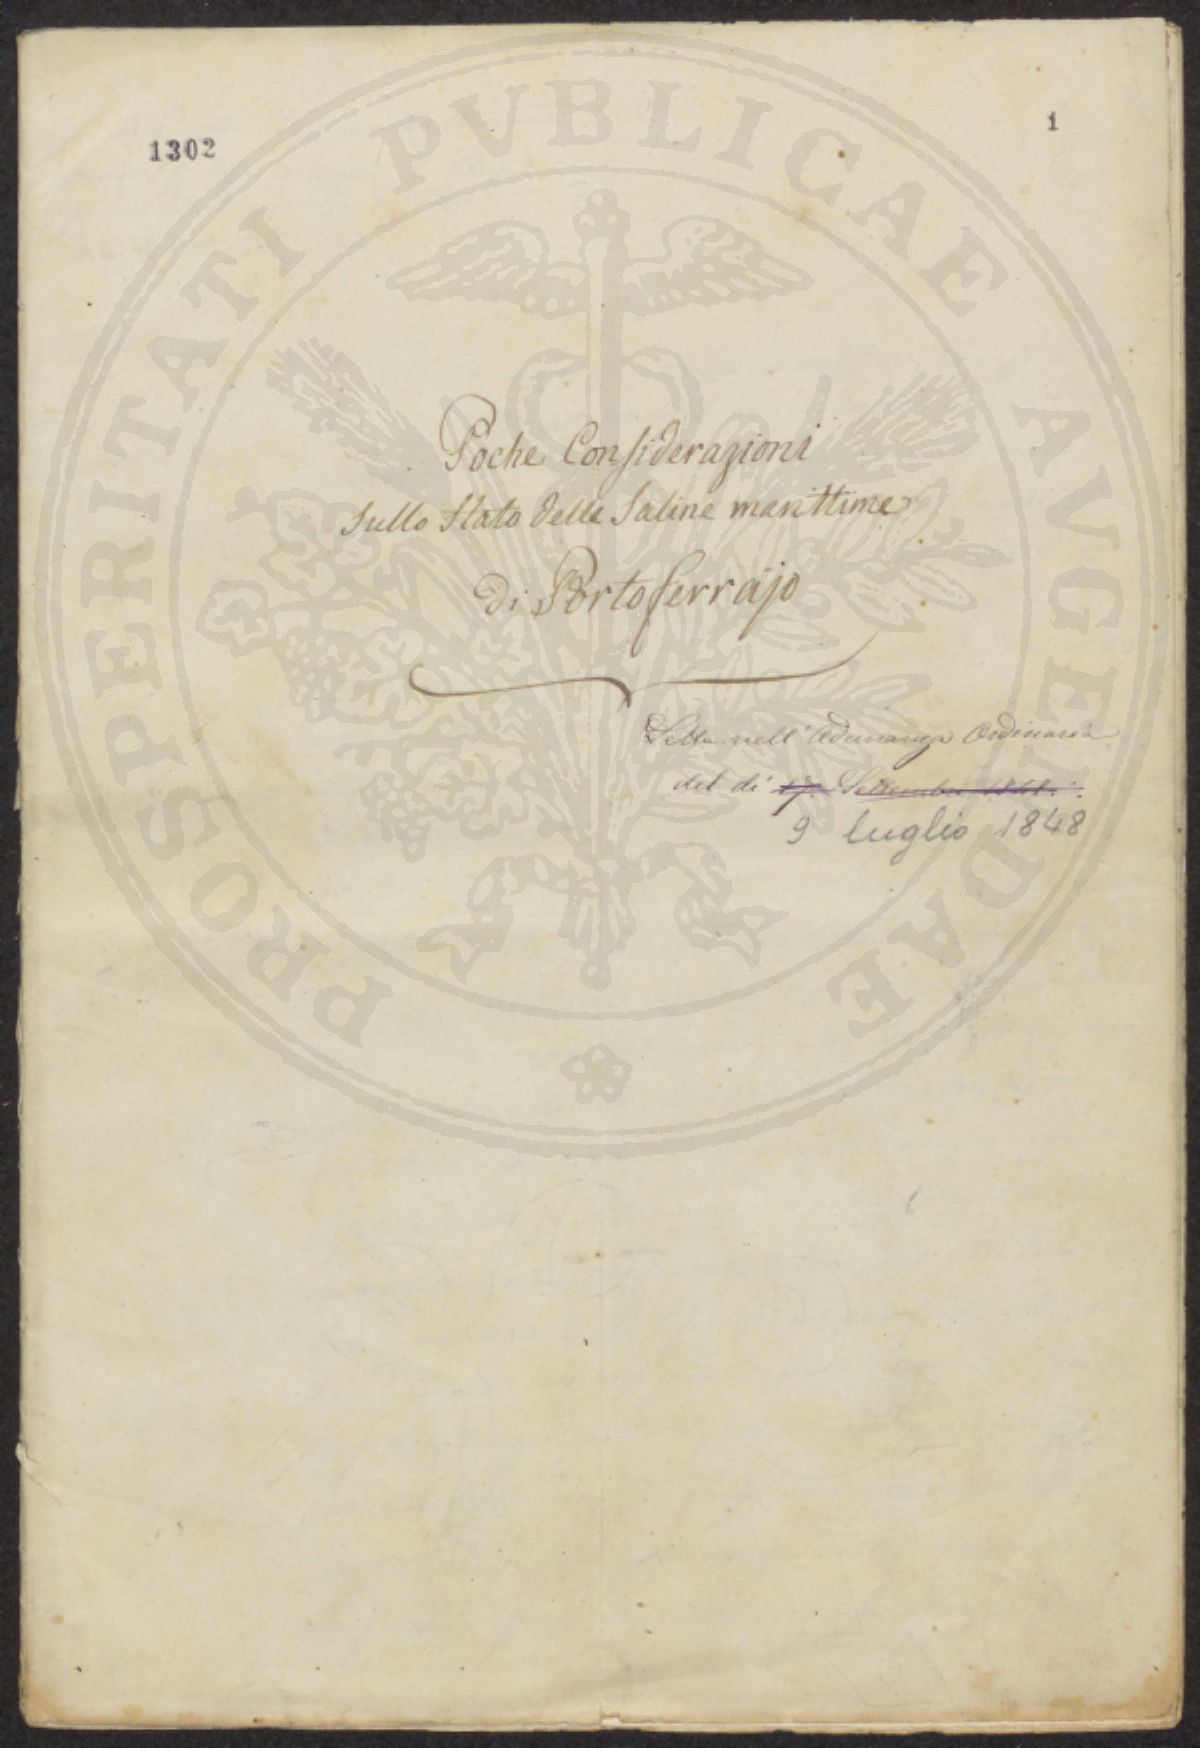 1302
1
PROSPERITATI PVBLICAE AVGENDAE
Poche Considerazioni
sullo stato delle Saline marittime
di Portoferrajo
Letta nell'Adunanza Ordinaria
del dì 17. Settembre
9 luglio 1848